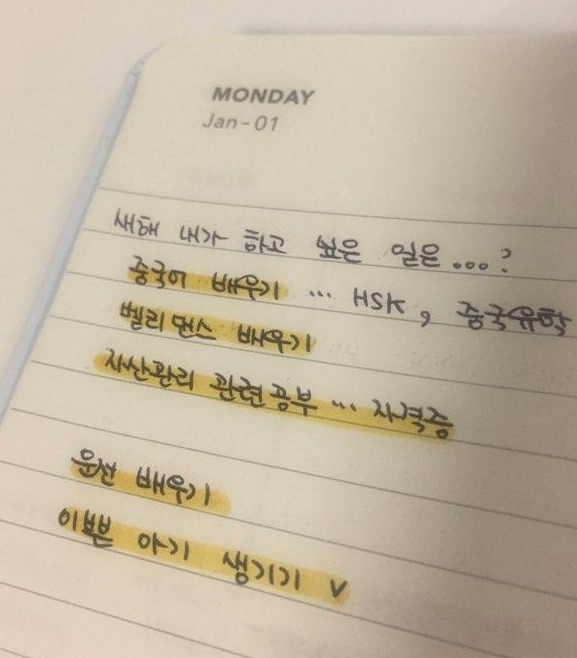 MONDAY
Jan-01
새해 내가 하고 싶은 일은...?
중국어 배우기 ... HSK, 중국유학
벨리댄스 배우기
자산관리 관련공부 ... 자격증
운전 배우기
이쁜 아기 생기기 v